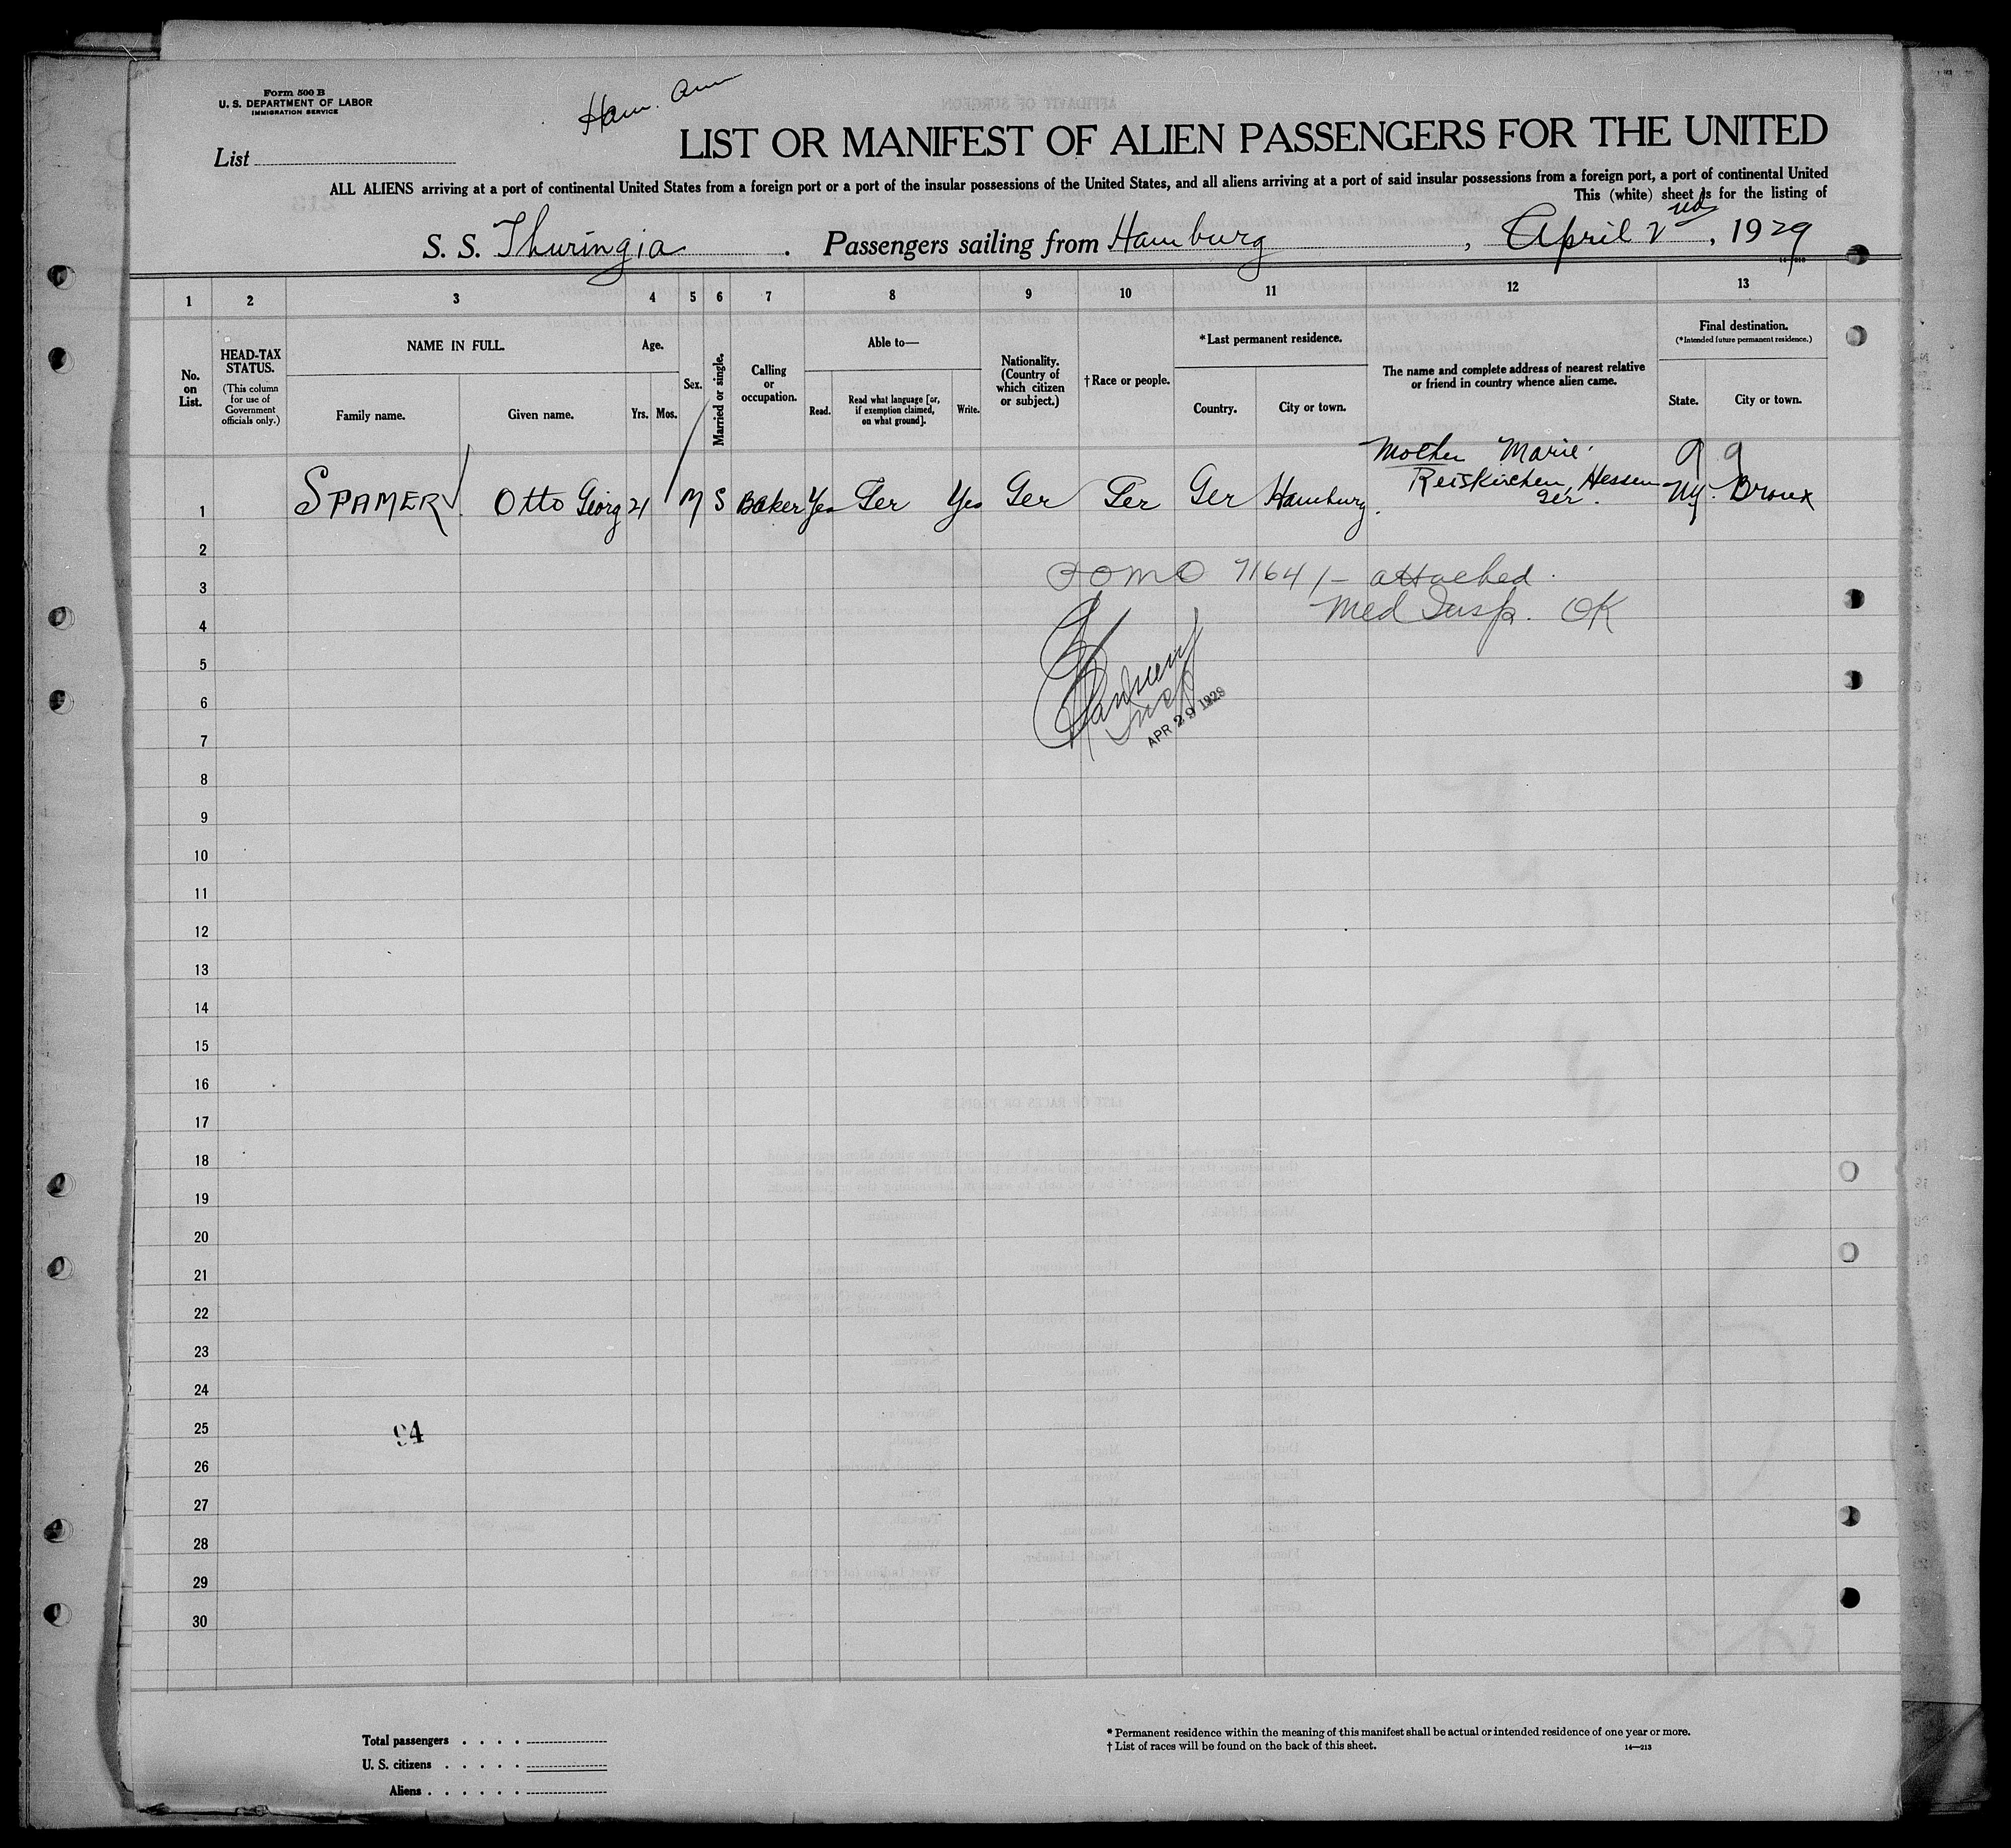 Form 500 B
U. S. DEPARTMENT OF LABOR
IMMIGRATION SERVICE
Ham. Am
List
LIST OR MANIFEST OF ALIEN PASSENGERS FOR THE UNITED
ALL ALIENS arriving at a port of continental United States from a foreign port or a port of the insular possessions of the United States, and all aliens arriving at a port of said insular possessions from a foreign port, a port of continental United
This (white) sheet is for the listing of
S. S. Thuringia. Passengers sailing from Hamburg, April 2nd, 1929
1 2 3 4 5 6 7 8 9 10 11 12 13
No. on List.
HEAD-TAX STATUS.
(This column for use of Government officials only.)
NAME IN FULL.
Family name.
Given name.
Age.
Yrs. Mos.
Sex.
Married or single.
Calling or occupation.
Able to—
Read.
Read what language [or, if exemption claimed, on what ground].
Write.
Nationality. (Country of which citizen or subject.)
†Race or people.
*Last permanent residence.
Country.
City or town.
The name and complete address of nearest relative or friend in country whence alien came.
Final destination.
(*Intended future permanent residence.)
State.
City or town.
Mother Marie
Reiskirchen, Hessen
Ger.
1 SPAMER Otto Georg 21 M S Baker Yes Ger Yes Ger Ger Ger Hamburg. NY. Bronx
2
3
attached.
4
Med Insp. OK
5
6
7
APR 29 1929
8
9
10
11
12
13
14
15
16
17
18
19
20
21
22
23
24
25
94
26
27
28
29
30
Total passengers
U. S. citizens
Aliens
* Permanent residence within the meaning of this manifest shall be actual or intended residence of one year or more.
† List of races will be found on the back of this sheet.
14—213